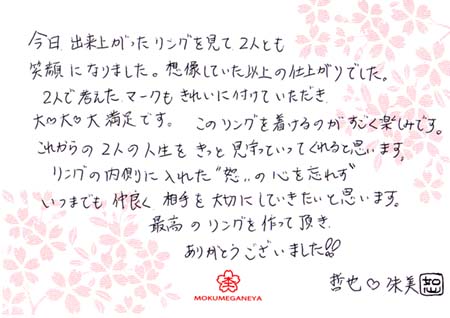 今日 出来上がったリングを見て 2人とも
笑顔になりました。想像していた以上の仕上がりでした。
2人で考えたマークもきれいに付けていただき
大♡大♡大満足です。このリングを着けるのがすごく楽しみです。
これからの2人の人生をきっと見守っていってくれると思います。
リングの内側に入れた"恕"の心を忘れず
いつまでも仲良く相手を大切にしていきたいと思います。
最高のリングを作って頂き
ありがとうございました!!
哲也♡朱美 恕
MOKUMEGANEYA